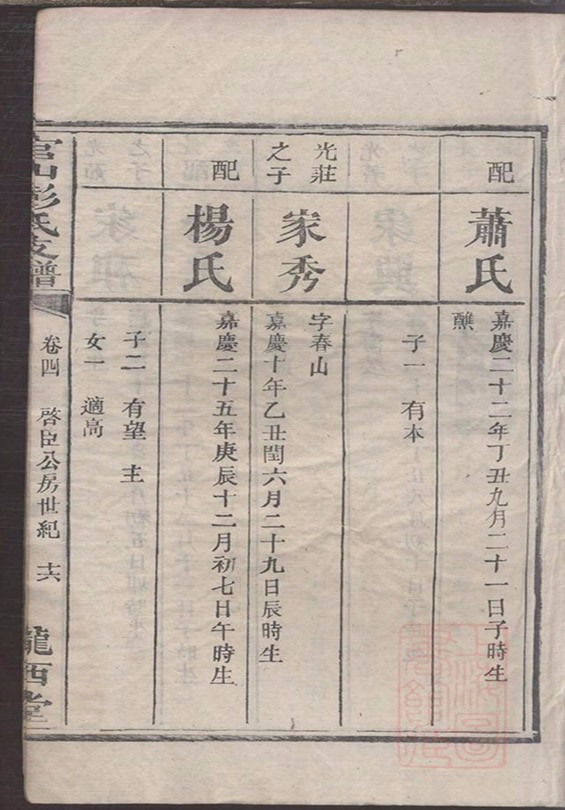 配
蕭氏
嘉慶二十二年丁丑九月二十一日子時生
醮
子一 有本
光莊之子
家秀
字春山
嘉慶十年乙丑閏六月二十九日辰時生
配
楊氏
嘉慶二十五年庚辰十二月初七日午時生
子二 有望 主
女一 適高
彭氏支譜
卷四 啓臣公房世紀 十六
隴西堂